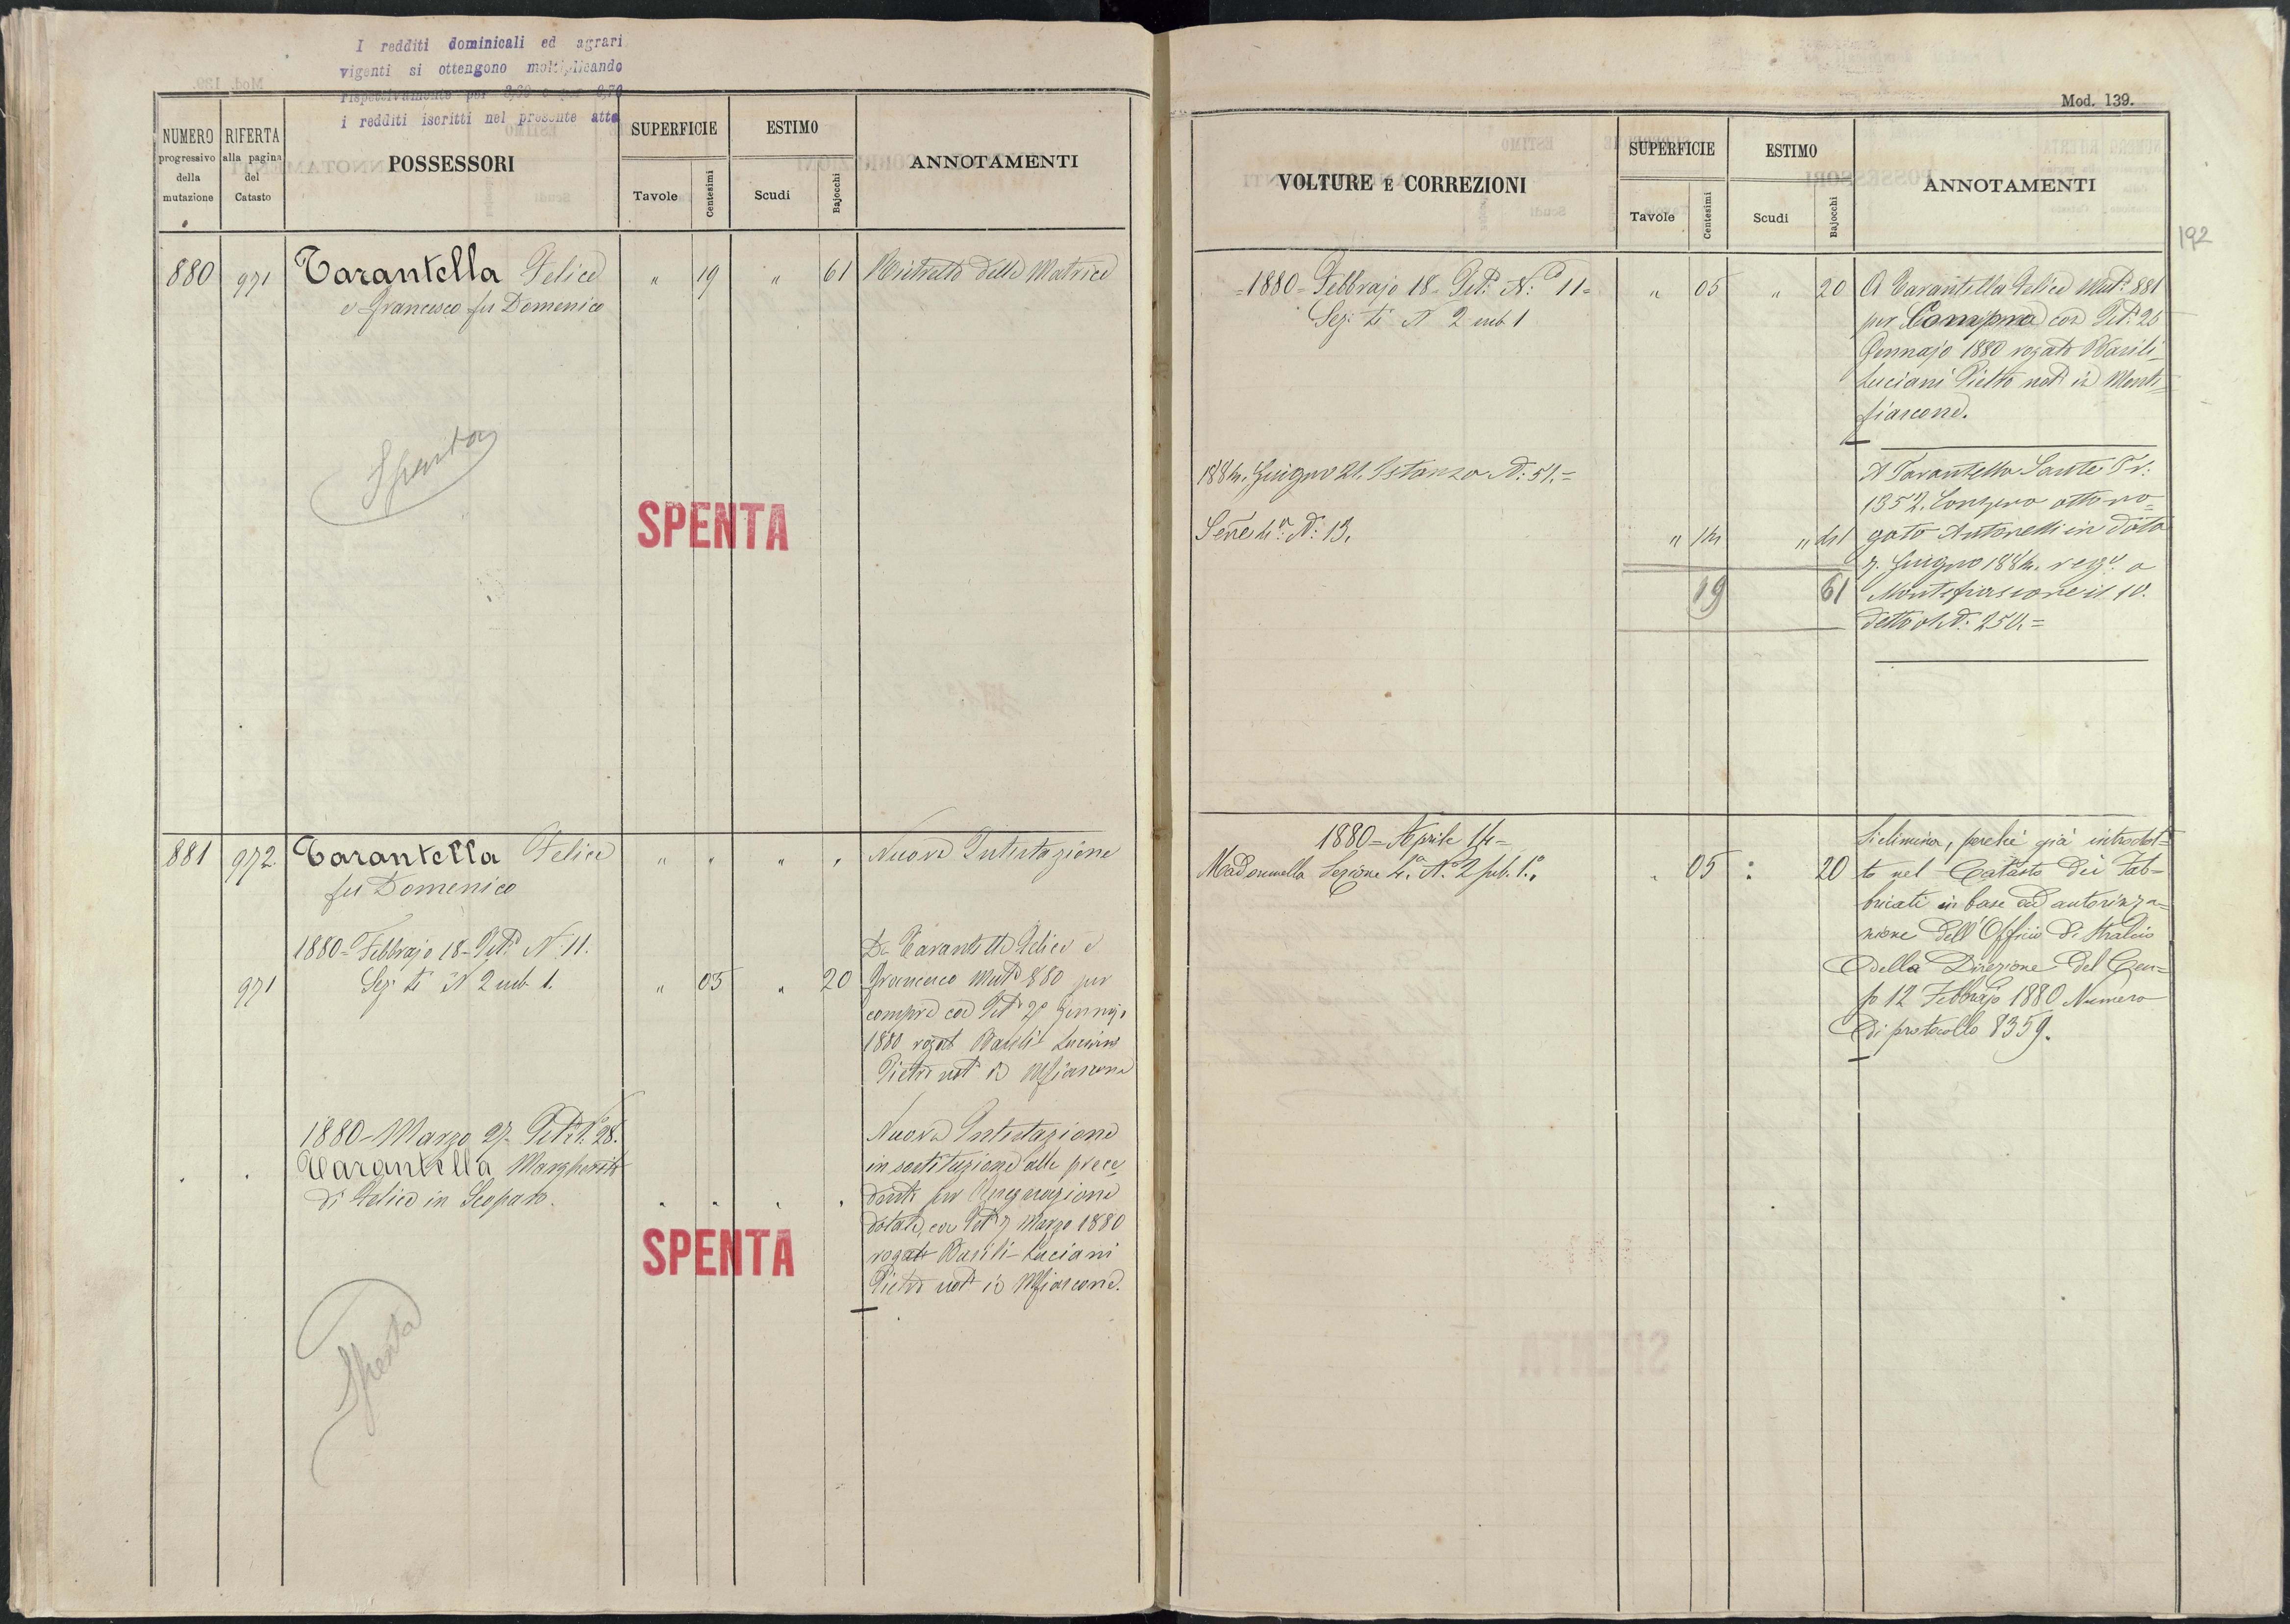 I redditi dominicali ed agrari
vigenti si ottengono moltiplicando
rispettivamente per
i redditi iscritti nel presente atto
NUMERO progressivo della mutazione
RIFERTA alla pagina del Catasto
POSSESSORI
SUPERFICIE
Tavole Centesimi
ESTIMO
Scudi Bajocchi
ANNOTAMENTI
880 971 Tarantella Felice " 19 " 61 Ritratto della Matrice
e Francesco fu Domenico
Spenta
SPENTA
881 972. Tarantella Felice " " " " Nuova Intestazione
fu Domenico
1880 - Febbrajo 18 - Petne N. 11.
971 Sez: N 2 sub. 1. " 05 " 20
Da Tarantella Felice e
Francesco Mut. 880 per
compra con
1880 rogato Basili Luciani
Pietro not in Mfiascone
1880 - Marzo 27 - 28.
Tarantella Margherita
di Felice in Scoparo.
Nuova Intestazione
in sostituzione alla prece
dente per Assegnazione
dotale, con 7 Marzo 1880
rogato Basili - Luciani
Pietro not in Mfiascone.
SPENTA
Spenta
Mod. 139.
192
VOLTURE E CORREZIONI
SUPERFICIE
Tavole Centesimi
ESTIMO
Scudi Bajocchi
ANNOTAMENTI
= 1880 = Febbrajo 18 - N: 11 =
Sez: N 2 sub 1
" 05 " 20
A Tarantella Felice Mut. 881
per Compra con 26
Gennajo 1880 rogato Basili-
Luciani Pietro not in Monte-
fiascone.
1884. Giugno 21. Istanza N: 51. =
Serre 4a. N: 13. " 14 " 41
19 61
A Tarantella Sante
1352. Con atto ro=
gato Antonelli in data
7. Giugno 1884. reg. a
Montefiascone il 10.
detto al N: 250. =
1880 - Aprile 14 -
Madonnella Sezione 4.a N.o 2 sub. 1.o " 05 : 20
Si elimina, perché già introdot=
to nel Catasto dei Fab=
bricati in base ad autorizza=
zione dell'Officio di Stralcio
della Direzione del Cen=
so 12 Febbrajo 1880 Numero
di protocollo 8359.